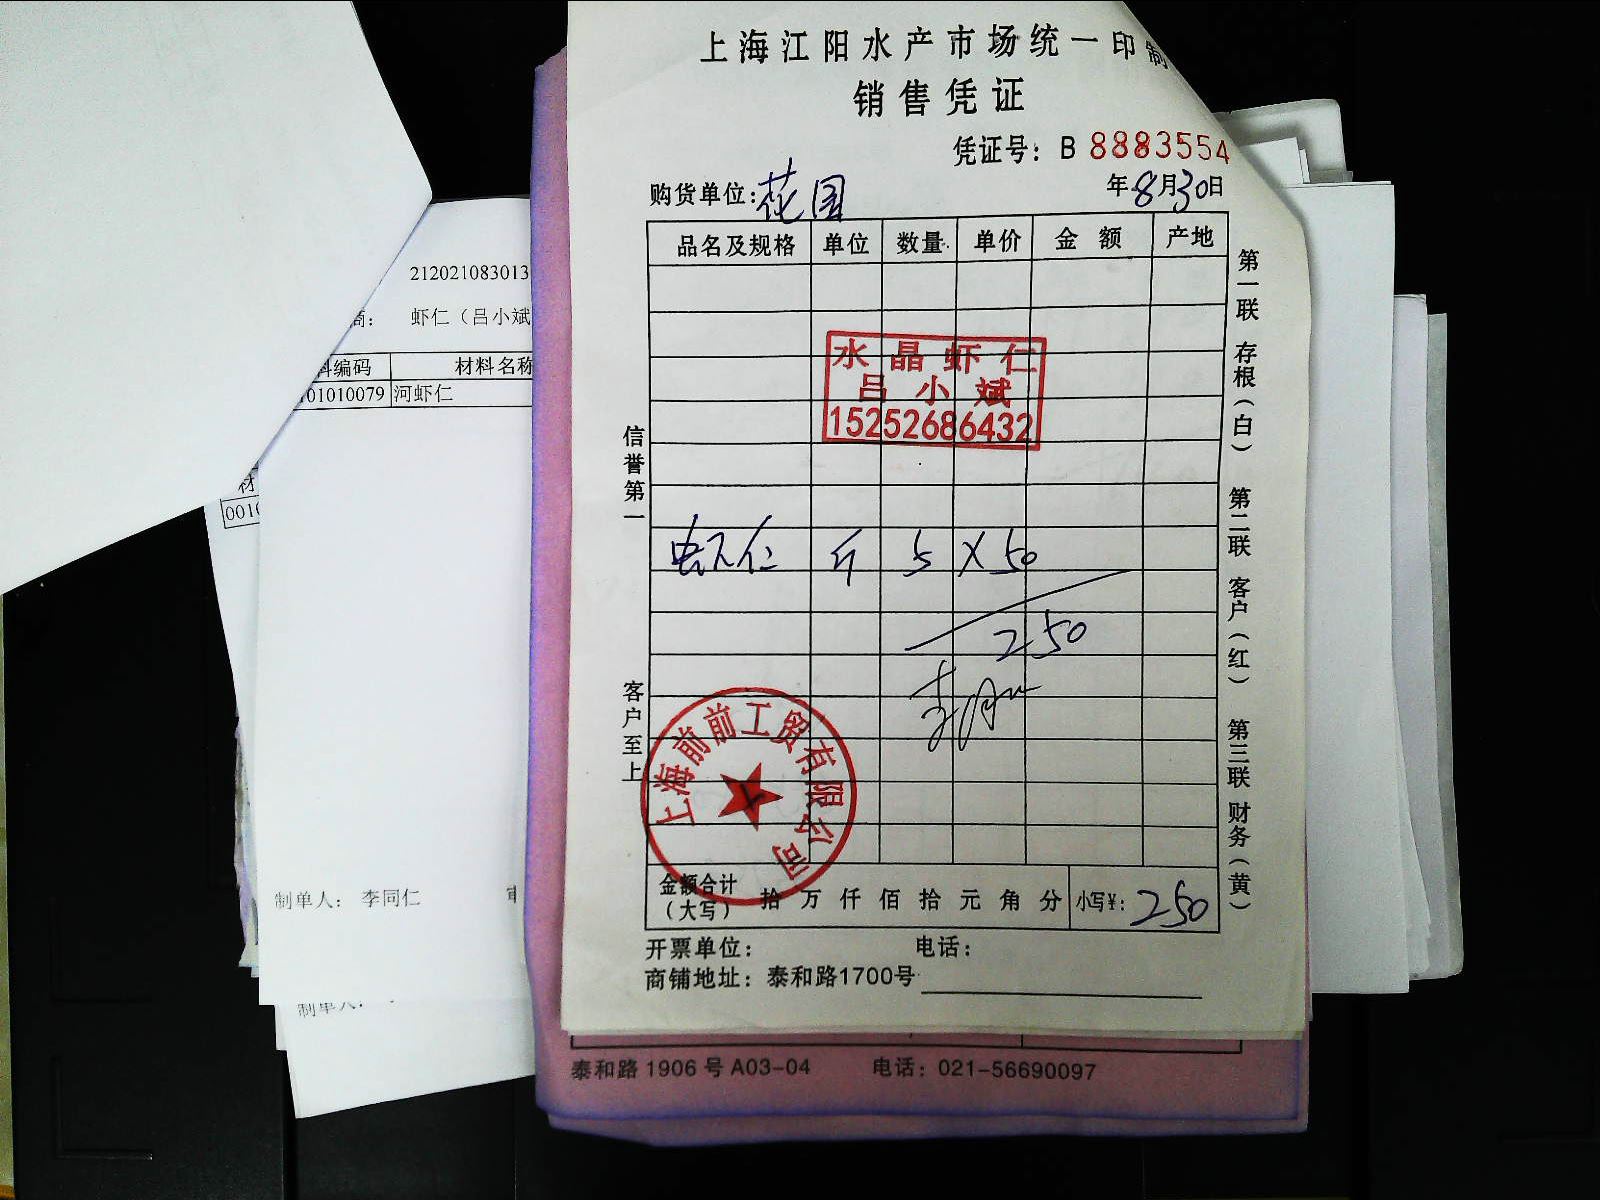 上海江阳水产市场统一印制
销售凭证
凭证号：B 8883554
购货单位：花园 年8月30日
品名及规格 单位 数量 单价 金额 产地
水晶虾仁
吕小斌
15252686432
虾仁 斤 5 X 50
250
上海前前工贸有限公司
金额合计（大写） 拾 万 仟 佰 拾 元 角 分 小写¥：250
开票单位： 电话：
商铺地址：泰和路1700号
信誉第一
客户至上
第一联 存根（白） 第二联 客户（红） 第三联 财务（黄）
泰和路 1906 号 A03-04 电话：021-56690097
212021083013
商： 虾仁（吕小斌
料编码 材料名称
01010079 河虾仁
材
0010
制单人： 李同仁 审
制单人：